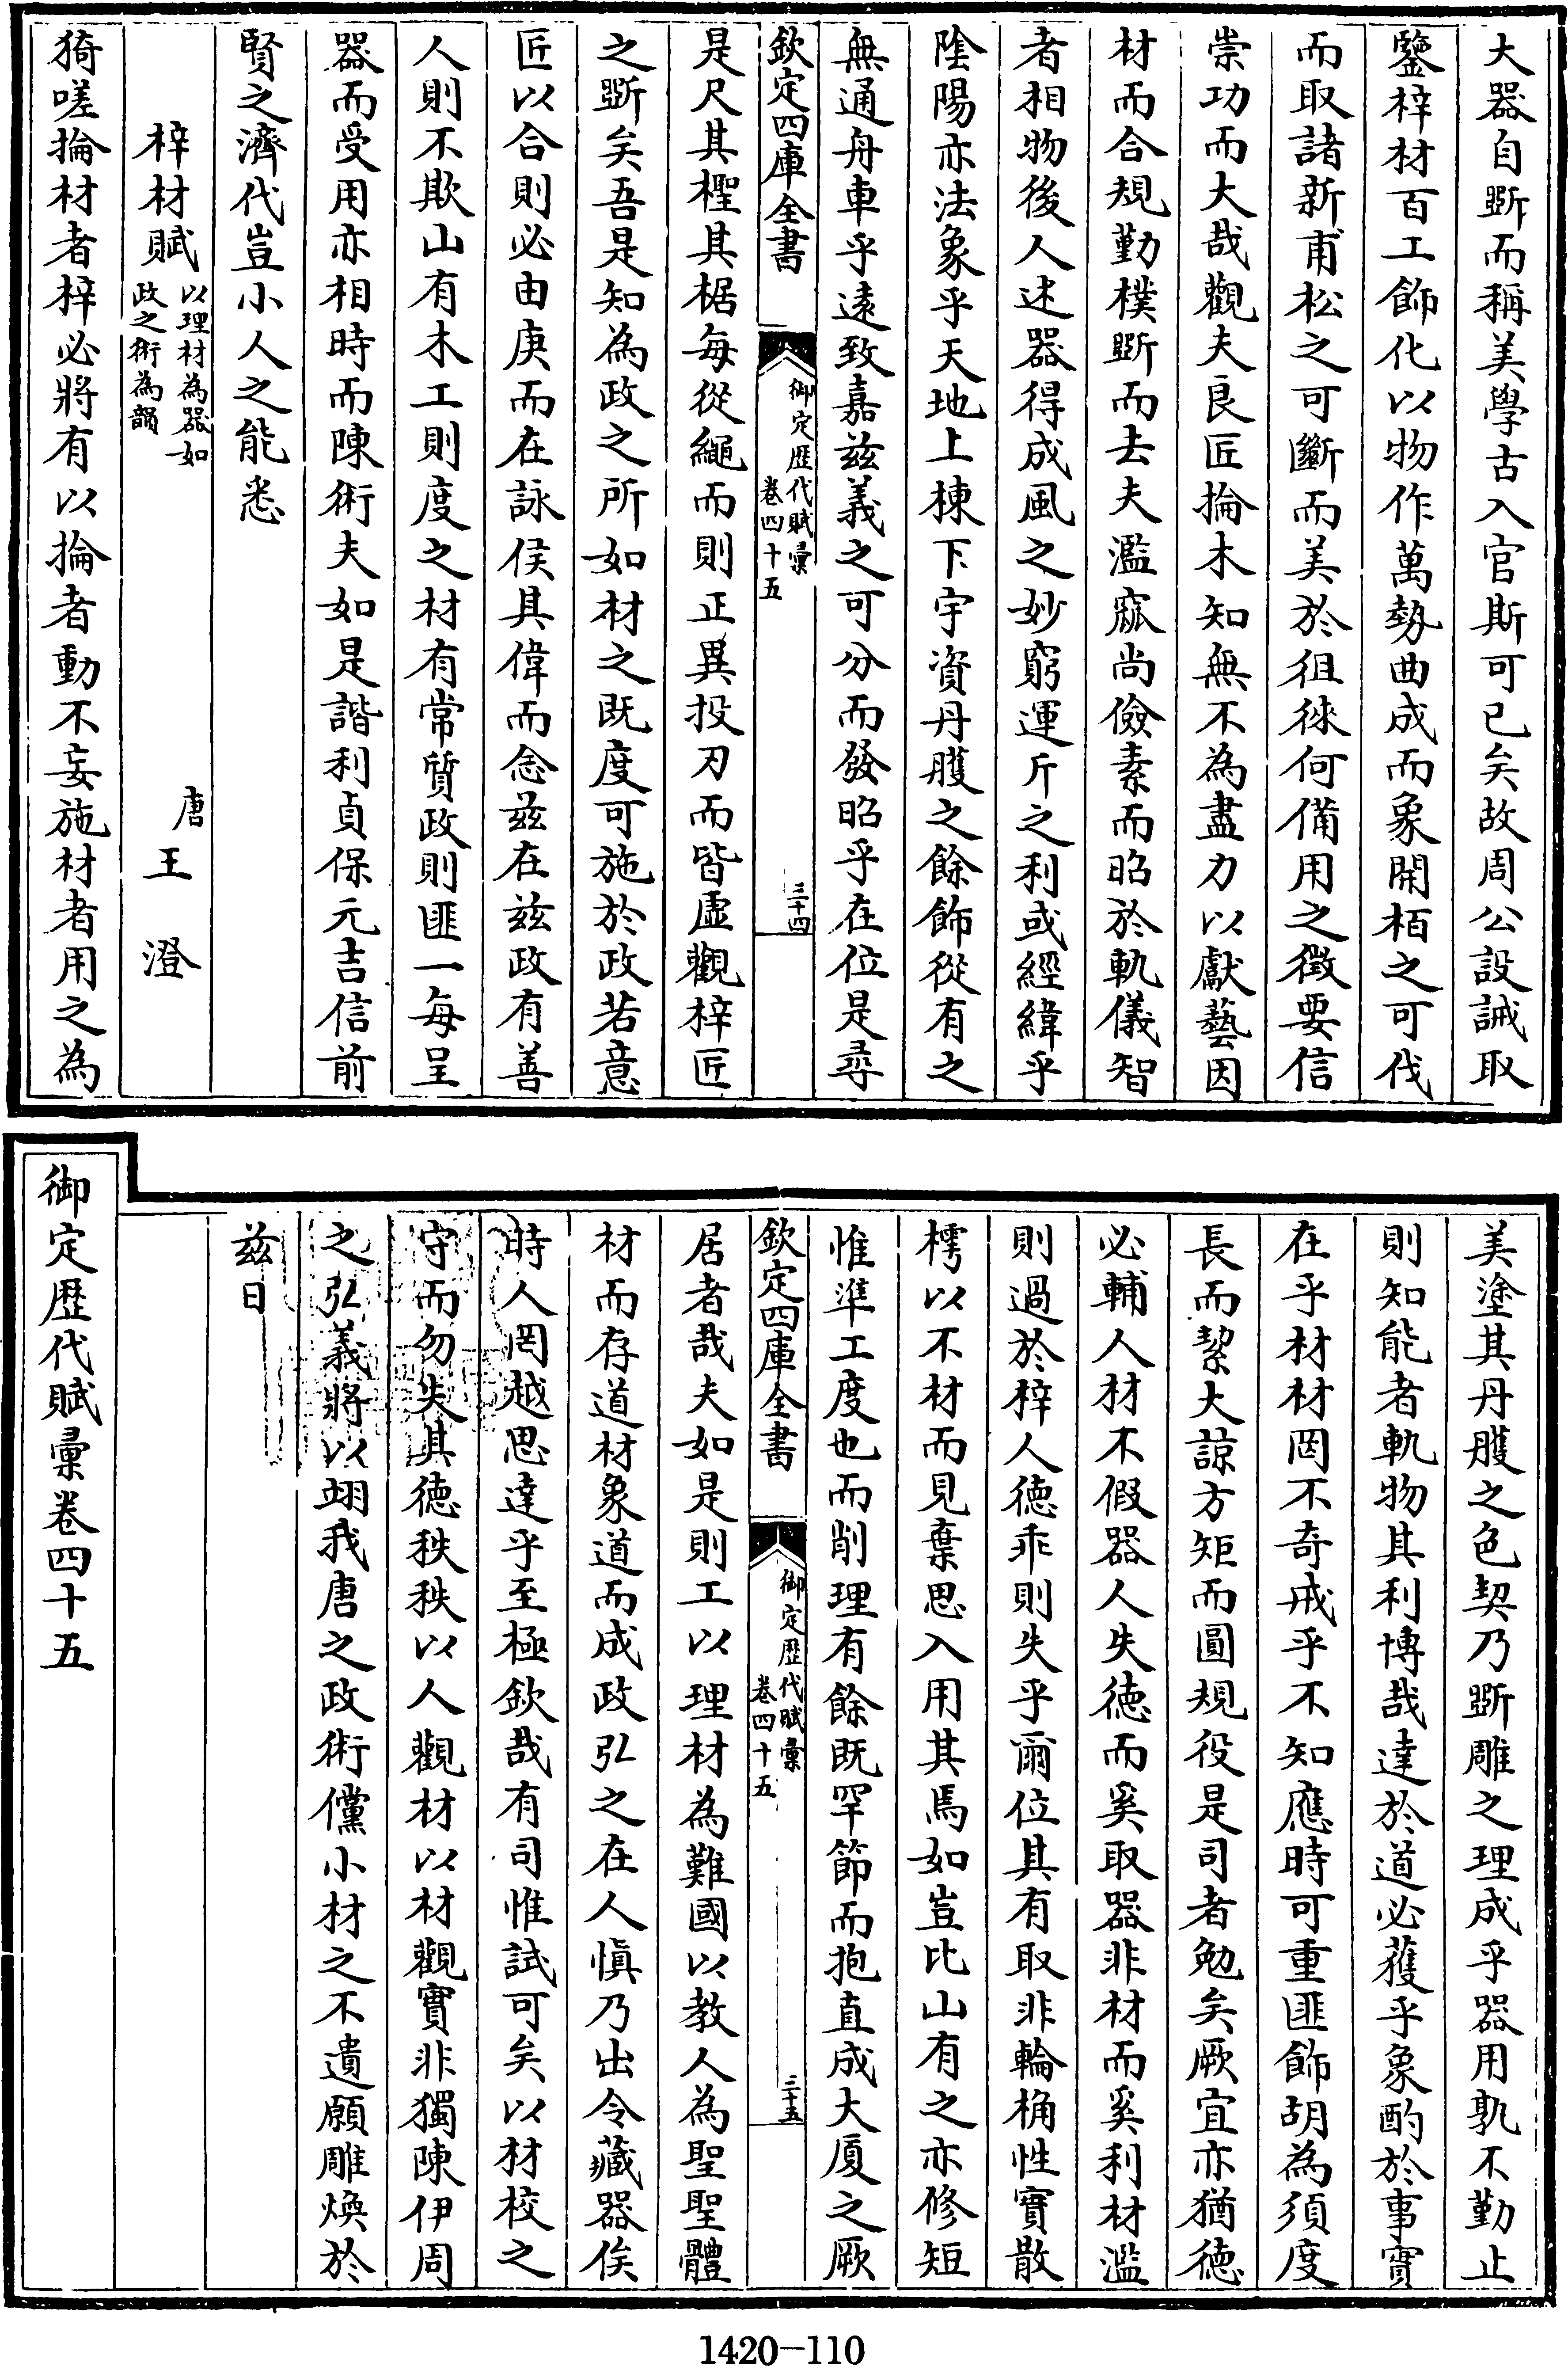 大器自斲而稱美學古入官斯可已矣故周公設誡取
鑒梓材百工飾化以物作萬勢曲成而象開栢之可伐
而取諸新甫松之可斷而美於徂徠何備用之徵要信
崇功而大哉觀夫良匠掄木知無不為盡力以獻藝因
材而合規勤樸斲而去夫濫窳尚儉素而昭於軌儀智
者相物後人述器得成風之妙窮運斤之利或經緯乎
陰陽亦法象乎天地上棟下宇資丹雘之餘飾從有之
無通舟車乎遠致嘉兹義之可分而發昭乎在位是尋
欽定四庫全書
御定歴代賦彙
卷四十五
三十四
是尺其檉其椐每從繩而則正異投刃而皆虛觀梓匠
之斲矣吾是知為政之所如材之既度可施於政若意
匠以合則必由庚而在詠侯其偉而念兹在兹政有善
人則不欺山有木工則度之材有常質政則匪一每呈
器而受用亦相時而陳術夫如是諧利貞保元吉信前
賢之濟代豈小人之能悉
梓材賦
以理材為器如
政之術為韻
唐
王澄
猗嗟掄材者梓必將有以掄者動不妄施材者用之為
美塗其丹雘之色契乃斲雕之理成乎器用孰不勤止
則知能者軌物其利博哉達於道必蒦乎象酌於事實
在乎材材罔不奇戒乎不知應時可重匪飾胡為須度
長而絜大諒方矩而圓規役是司者勉矣厥宜亦猶德
必輔人材不假器人失德而奚取器非材而奚利材濫
則過於梓人德乖則失乎爾位其有取非輪桷性實散
樗以不材而見棄思入用其焉如豈比山有之亦修短
惟準工度也而削理有餘既罕節而抱直成大厦之厥
欽定四庫全書
御定歴代賦彙
卷四十五
三十五
居者哉夫如是則工以理材為難國以教人為聖聖體
材而存道材象道而成政弘之在人慎乃出令藏器俟
時人罔越思達乎至極欽哉有司惟試可矣以材校之
守而勿失其德秩秩以人觀材以材觀實非獨陳伊周
之弘義將以翊我唐之政術儻小材之不遺願雕煥於
兹日
御定歴代賦彙卷四十五
1420-110